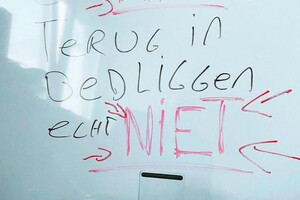 TERUG in
BEDLIGGEN
ECHT NIET